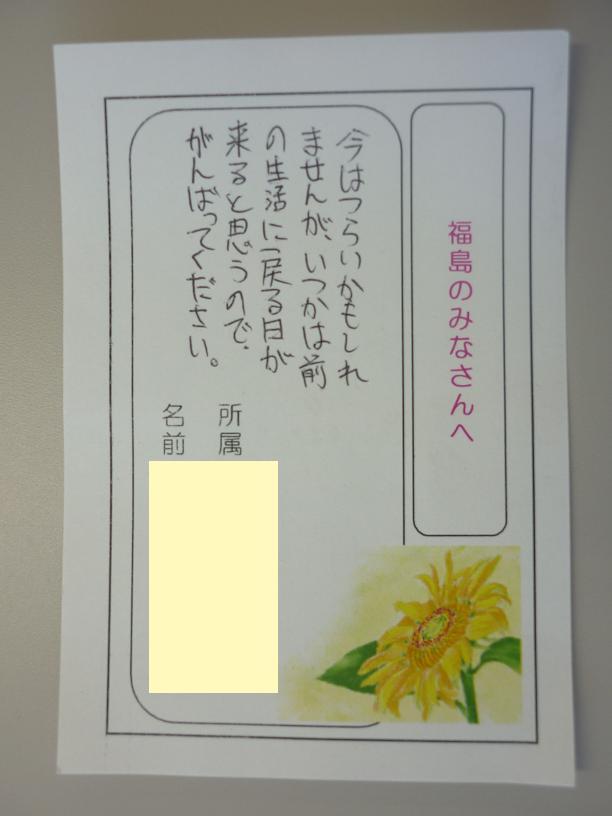 福島のみなさんへ
今はつらいかもしれ
ませんが、いつかは前
の生活に戻る日が
来ると思うので、
がんばってください。
所属
名前